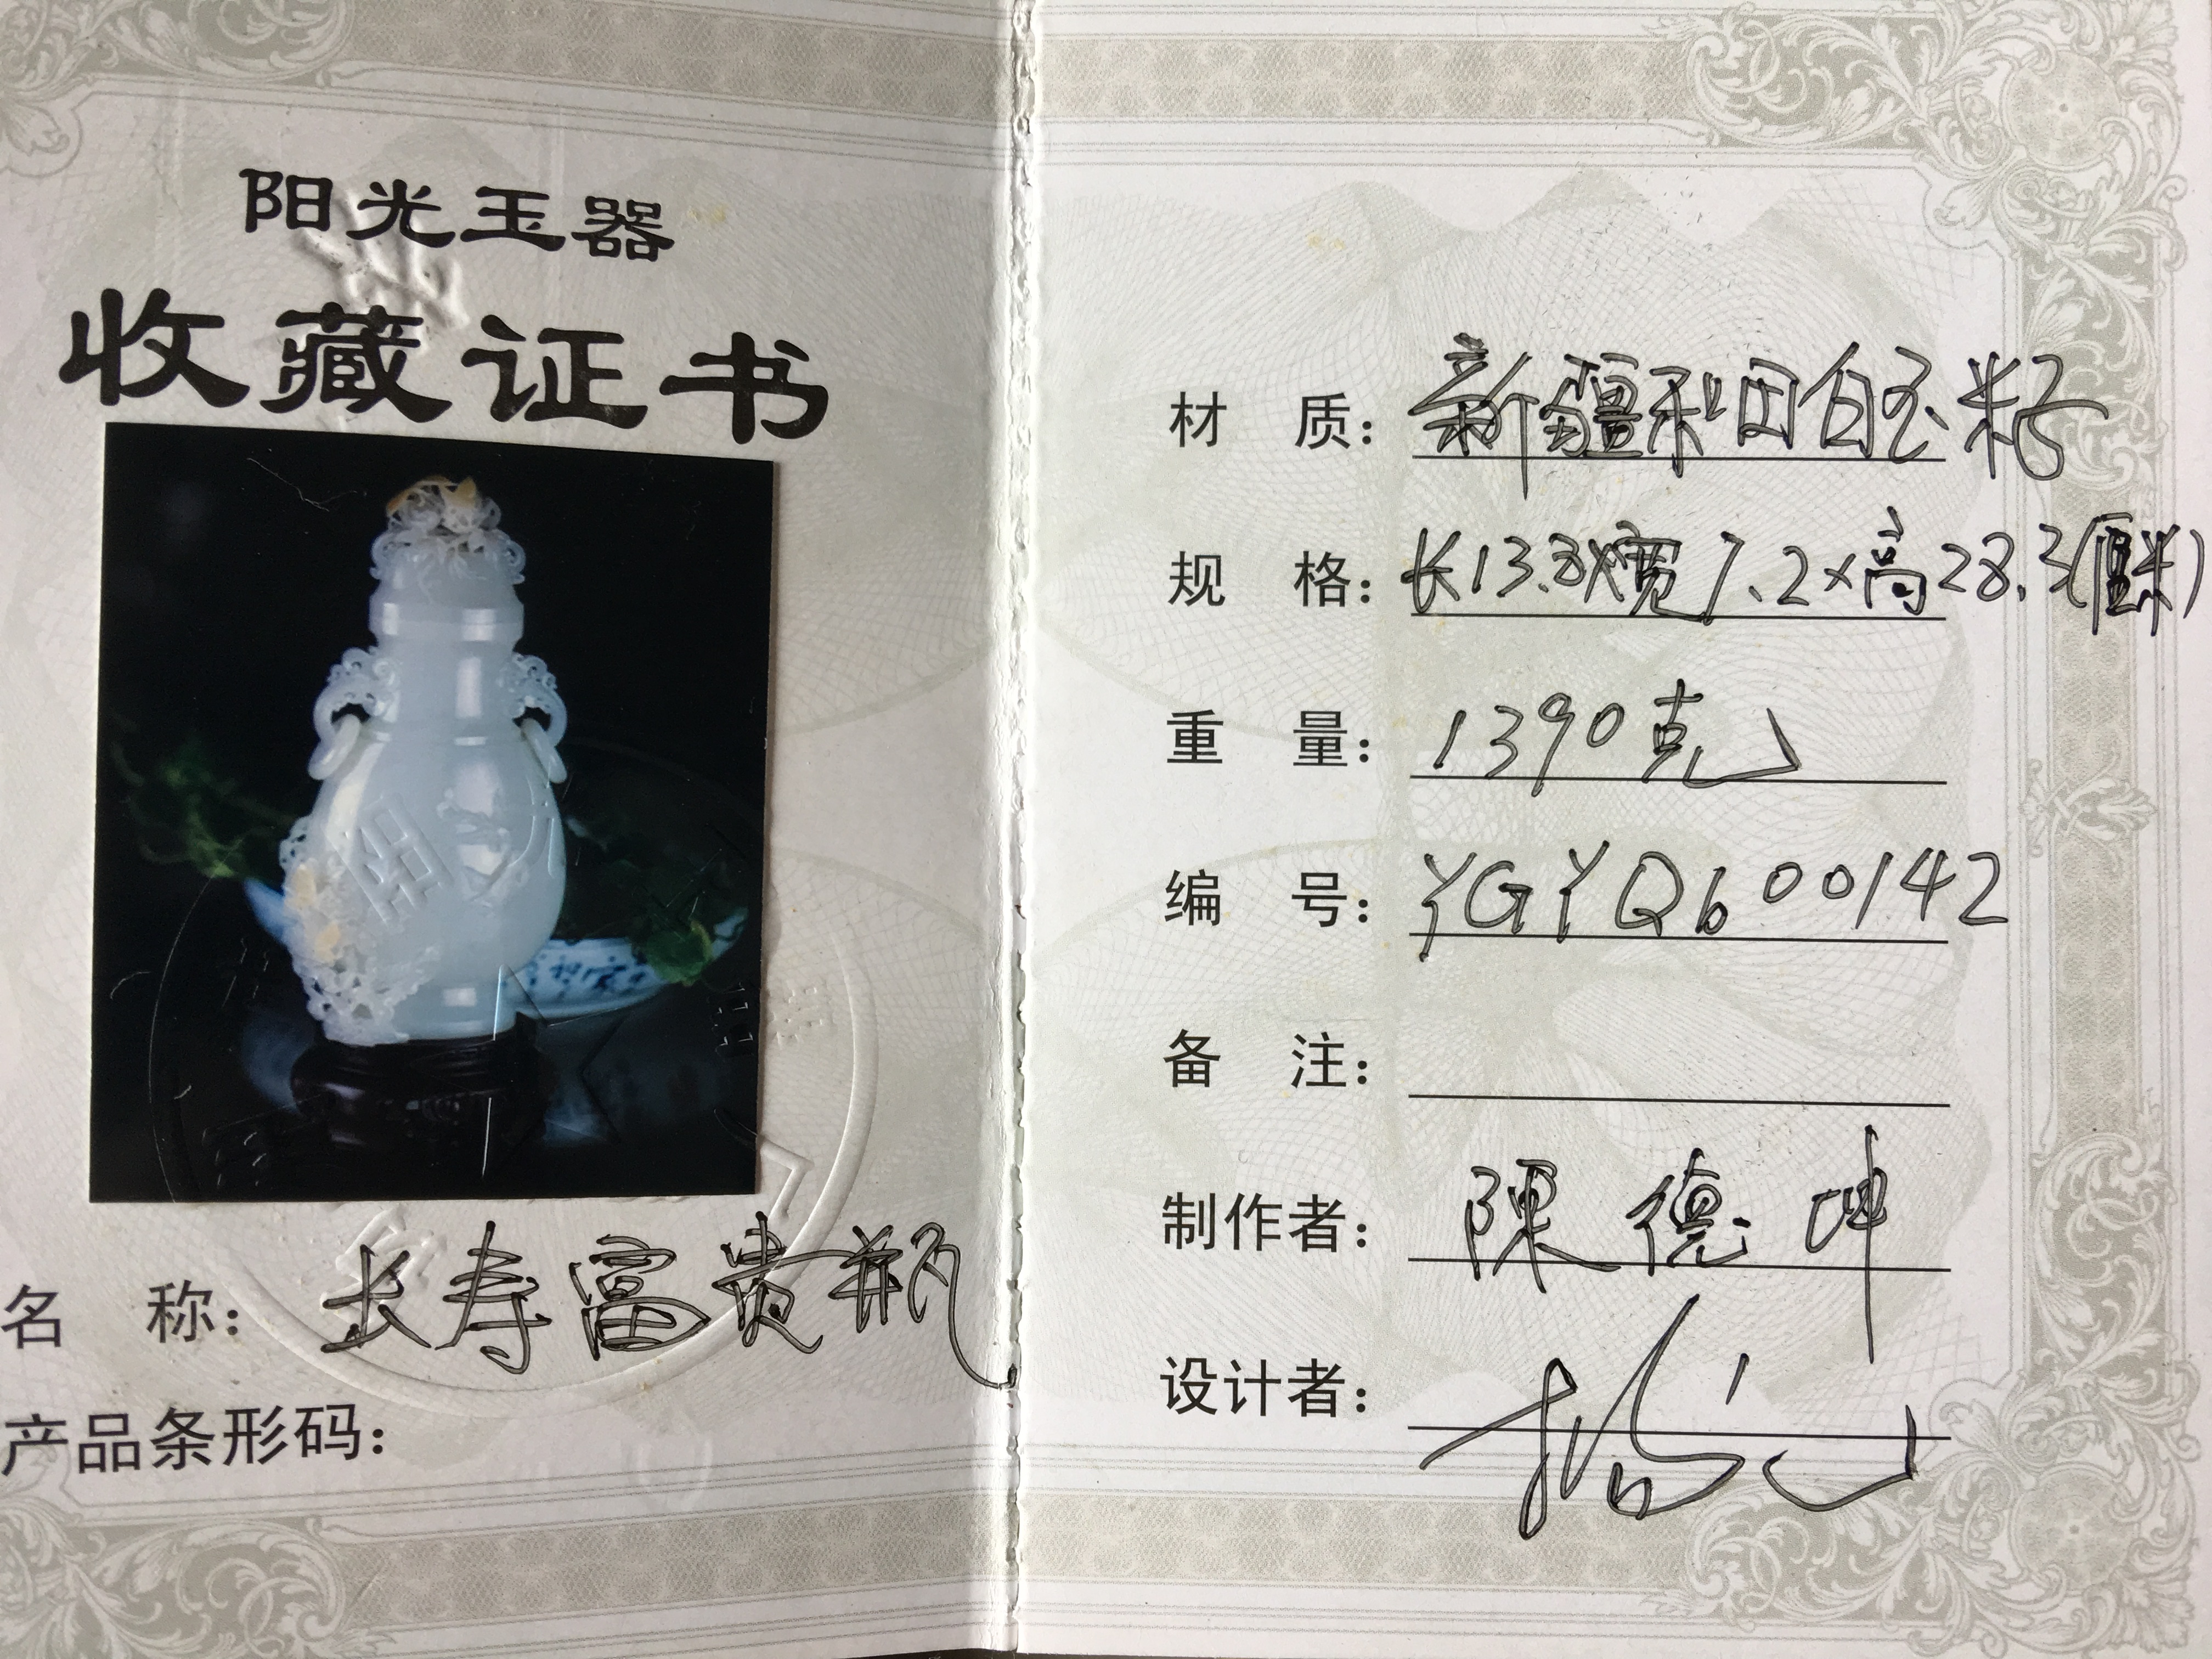 阳光玉器
收藏证书
名 称：长寿富贵瓶
产品条形码：
材 质：新疆和田白玉籽
规 格：长13.8×宽7.2×高28.3(厘米)
重 量：1390克
编 号：YGYQ600142
备 注：
制作者：陳德坤
设计者：